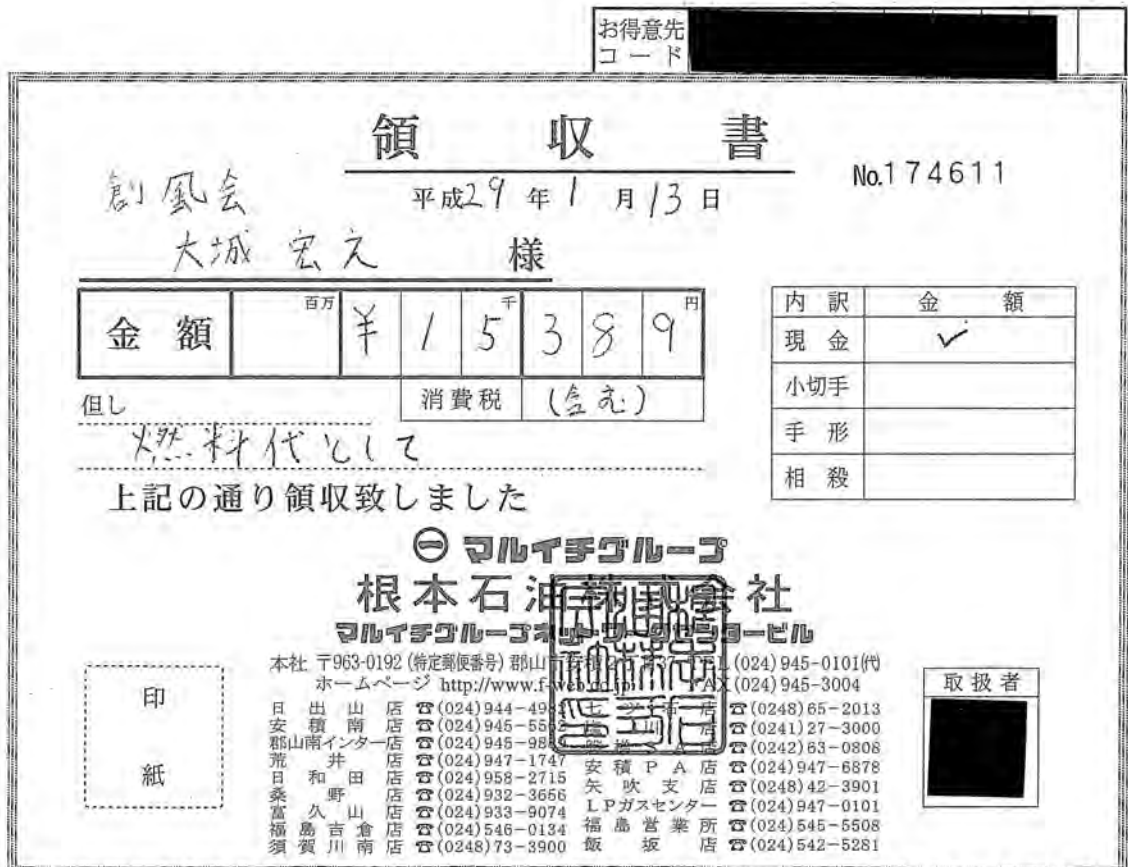 お得意先
コード
領収書
No.174611
平成29年1月13日
創風会
大城宏之 様
金額 百万 ¥15千389円
消費税 (含む)
但し
燃料代として
上記の通り領収致しました
内訳 金額
現金 ✓
小切手
手形
相殺
㊀ マルイチグループ
根本石油株式会社
マルイチグループネットワークセンタービル
本社 〒963-0192 (特定郵便番号) 郡山市安積 TEL(024)945-0101㈹
ホームページ http://www.f-web.co.jp FAX(024)945-3004
日出山店 ☎(024)944-49
安積南店 ☎(024)945-55
郡山南インター店 ☎(024)945-98
荒井店 ☎(024)947-1747
日和田店 ☎(024)958-2715
桑野店 ☎(024)932-3656
富久山店 ☎(024)933-9074
福島吉倉店 ☎(024)546-0134
須賀川南店 ☎(0248)73-3900
店 ☎(0248)65-2013
店 ☎(0241)27-3000
店 ☎(0242)63-0808
安積PA店 ☎(024)947-6878
矢吹支店 ☎(0248)42-3901
LPガスセンター ☎(024)947-0101
福島営業所 ☎(024)545-5508
飯坂店 ☎(024)542-5281
印
紙
取扱者